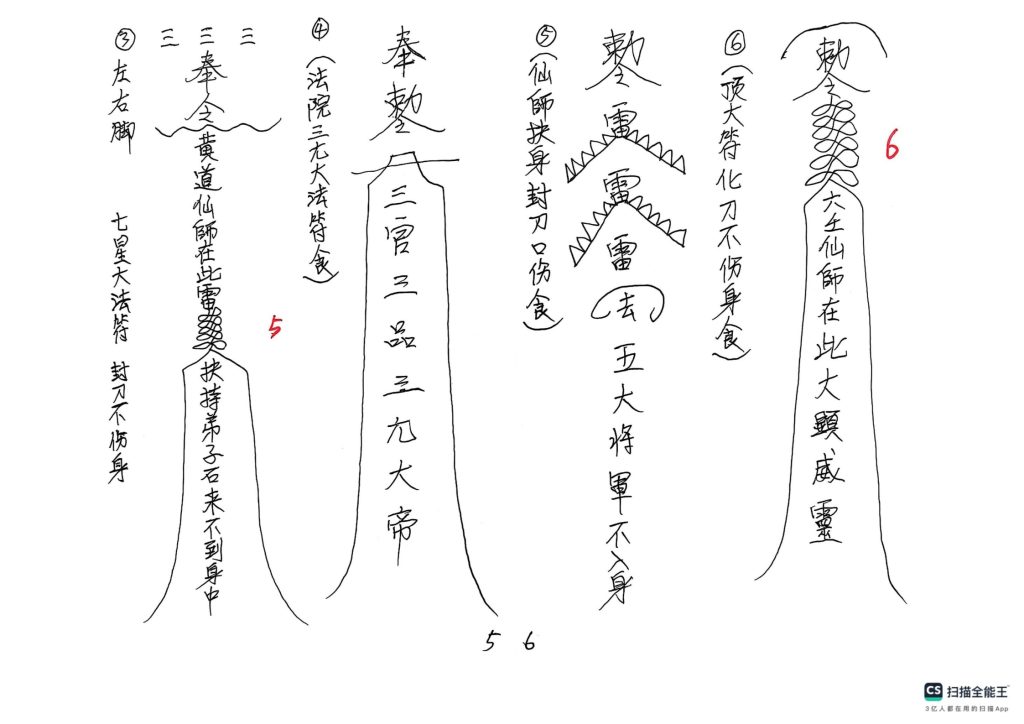 ③左右脚 七星大法符 封刀不伤身
三三三
奉令黄道仙師在此雷
扶持弟子石来不到身中
5
④(法院三元大法符食)
奉勅令
三官三品三九大帝
⑤(仙師扶身封刀口伤食)
勅令雷雷雷
去
五大将軍不入身
⑥(顶大符化刀不伤身食)
勅令
六壬仙師在此大顯威靈
6
5 6
CS 扫描全能王™
3亿人都在用的扫描App